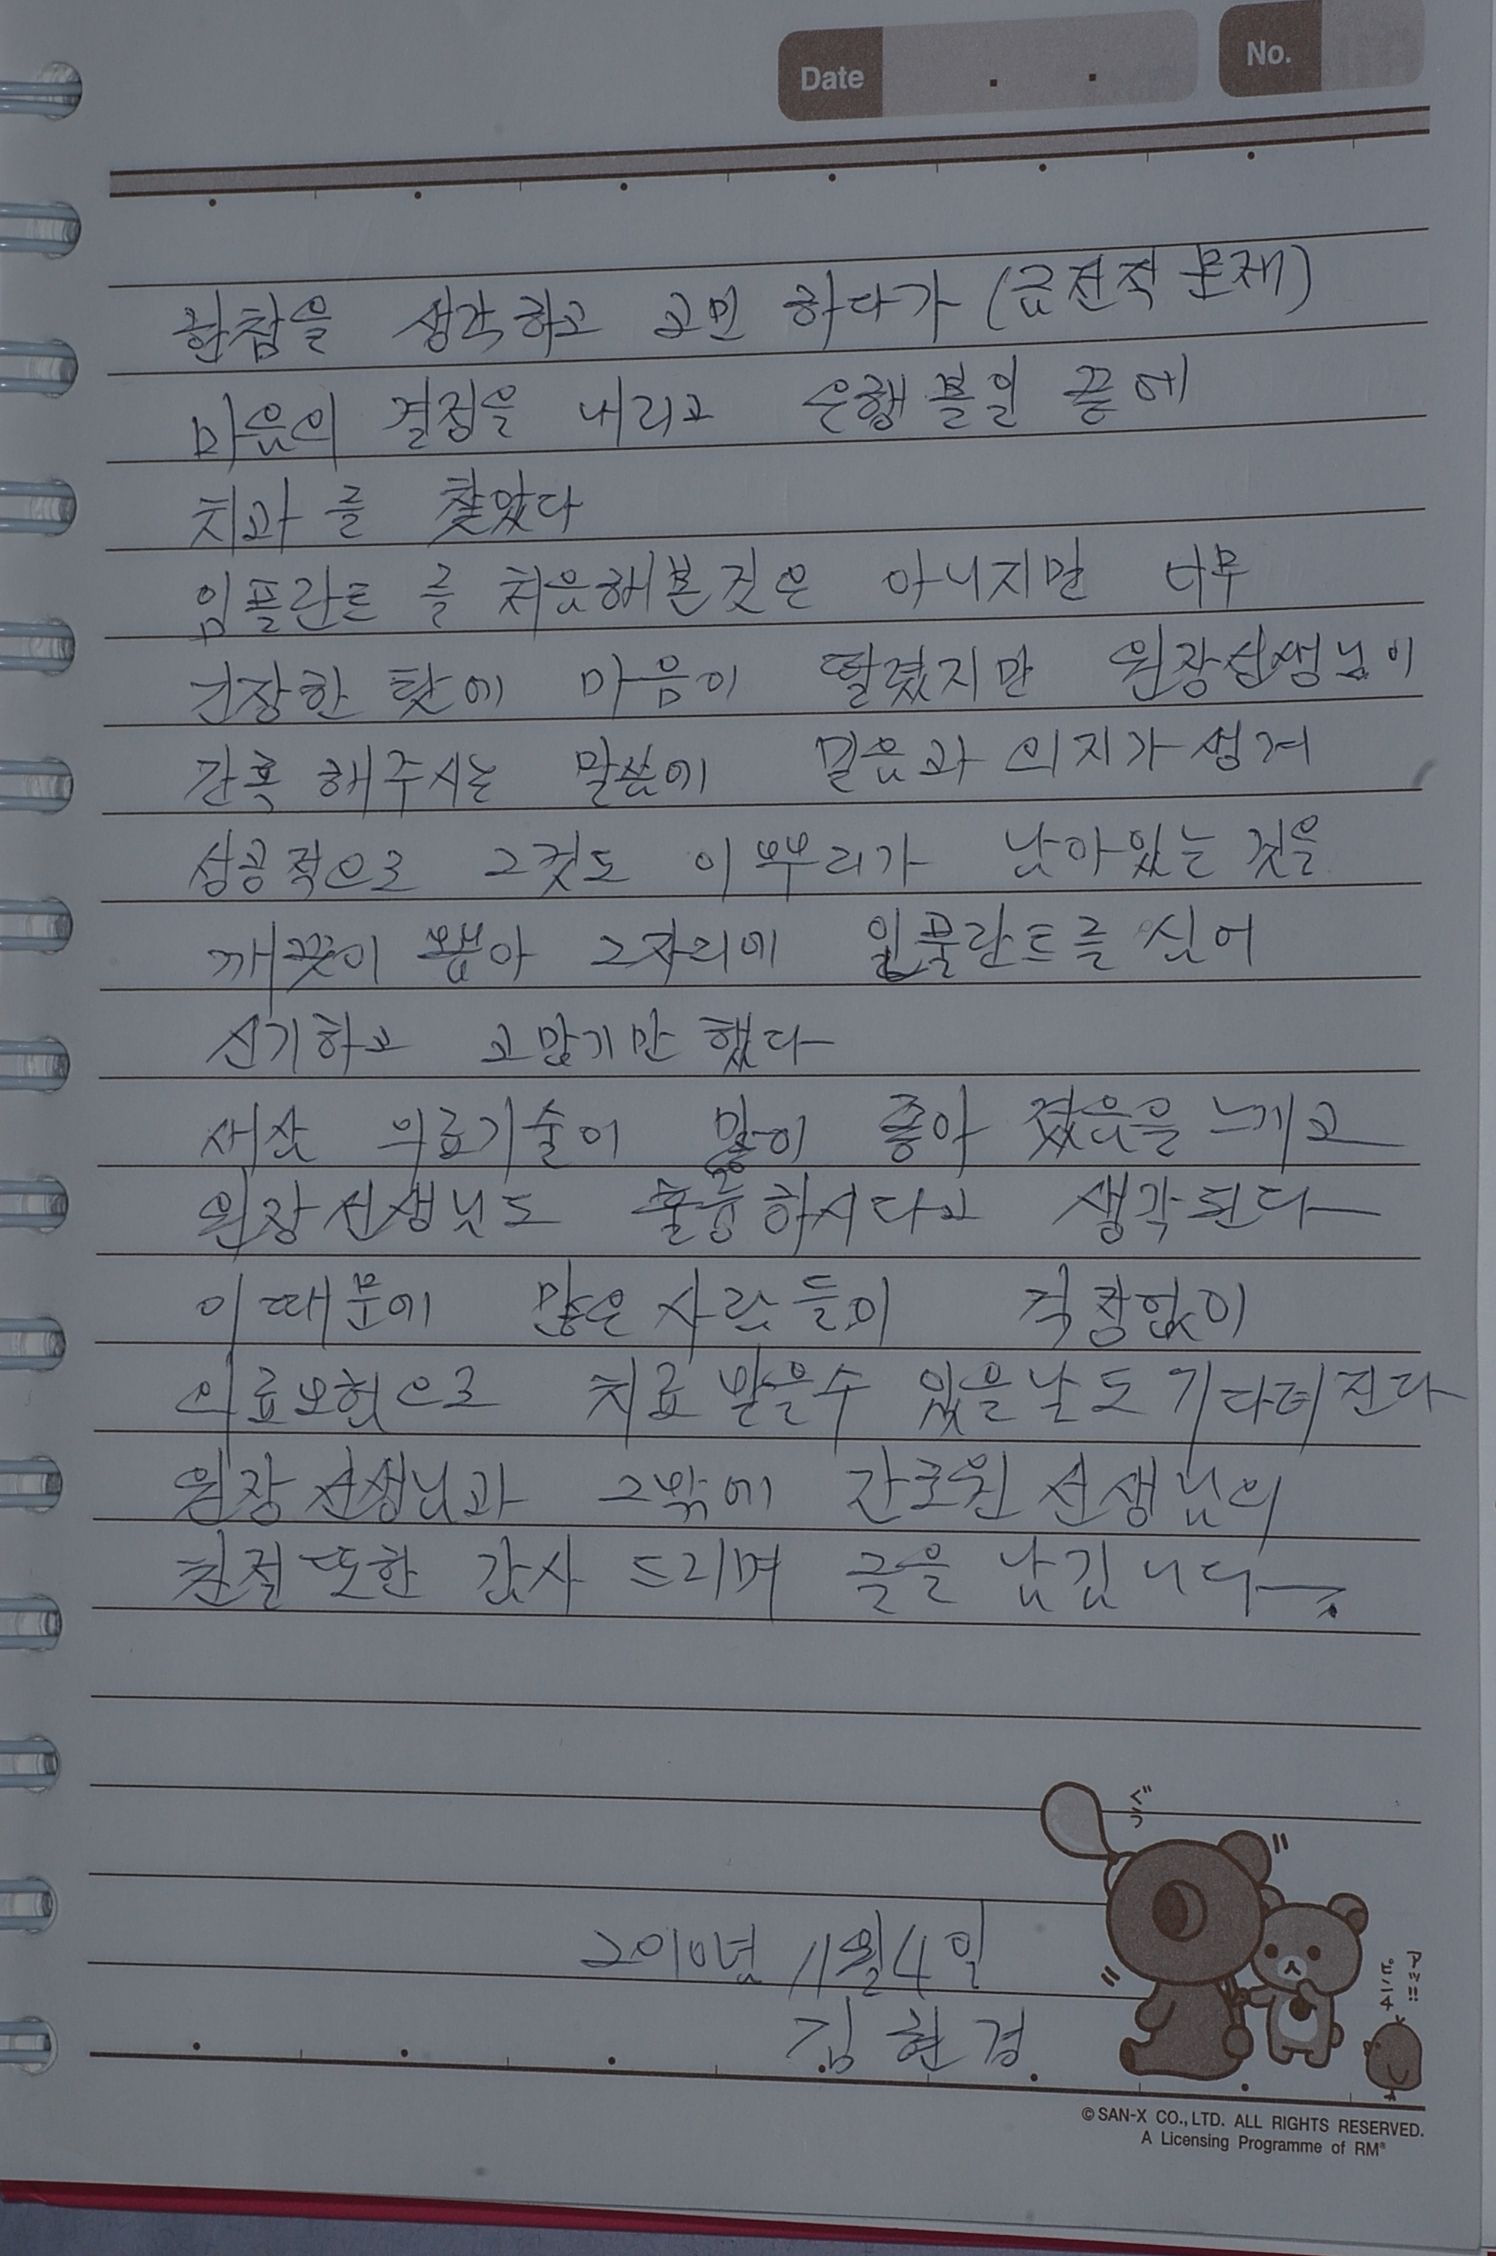 Date . . No.
한참을 생각하고 고민 하다가 (금전적 문제)
마음의 결정을 내리고 은행 볼일 끝에
치과를 찾았다
임플란트를 처음해본것은 아니지만 너무
긴장한 탓에 마음이 떨렸지만 원장선생님이
간혹 해주시는 말씀에 믿음과 의지가 생겨
성공적으로 그것도 이뿌리가 남아있는 것을
깨끗이 뽑아 그자리에 임풀란트를 심어
신기하고 고맙기만 했다
새삼 의료기술이 많이 좋아 졌음을 느끼고
원장선생님도 훌륭하시다고 생각된다
이때문에 많은 사람들이 걱정없이
의료보험으로 치료 받을수 있을날도 기다려진다
원장선생님과 그밖에 간호원 선생님의
친절 또한 감사 드리며 글을 남깁니다.
2010년 11월 4일
김현경
ぐっ
アッ!!
ピンチ
© SAN-X CO., LTD. ALL RIGHTS RESERVED.
A Licensing Programme of RM®